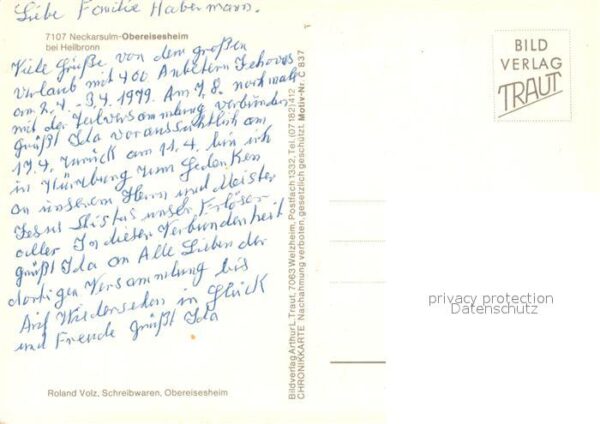 Liebe Familie Habermann.
7107 Neckarsulm-Obereisesheim
bei Heilbronn
Viele Grüße von dem großen
Urlaub mit 400 Anbetern Jehovas
am 2.4. - 3.4. 1979. Am 7, 8. nochmals
mit der Teilversammlung verbunden
grüßt Ida voraussichtlich am
17.4. zurück am 11.4. bin ich
in Würzburg zum Gedenken
an unserem Herrn und Meister
Jesus unser Erlöser
aller In dieser Verbundenheit
grüßt Ida an Alle Lieben der
dortigen Versammlung bis
Auf Wiedersehen in Glück
und Freude grüßt Ida
Roland Volz, Schreibwaren, Obereisesheim
Bildverlag Arthur L. Traut, 7063 Welzheim, Postfach 1332, Tel. (07182) 412
CHRONIKKARTE Nachahmung verboten, gesetzlich geschützt. Motiv-Nr. C 837
BILD
VERLAG
TRAUT
privacy protection
Datenschutz